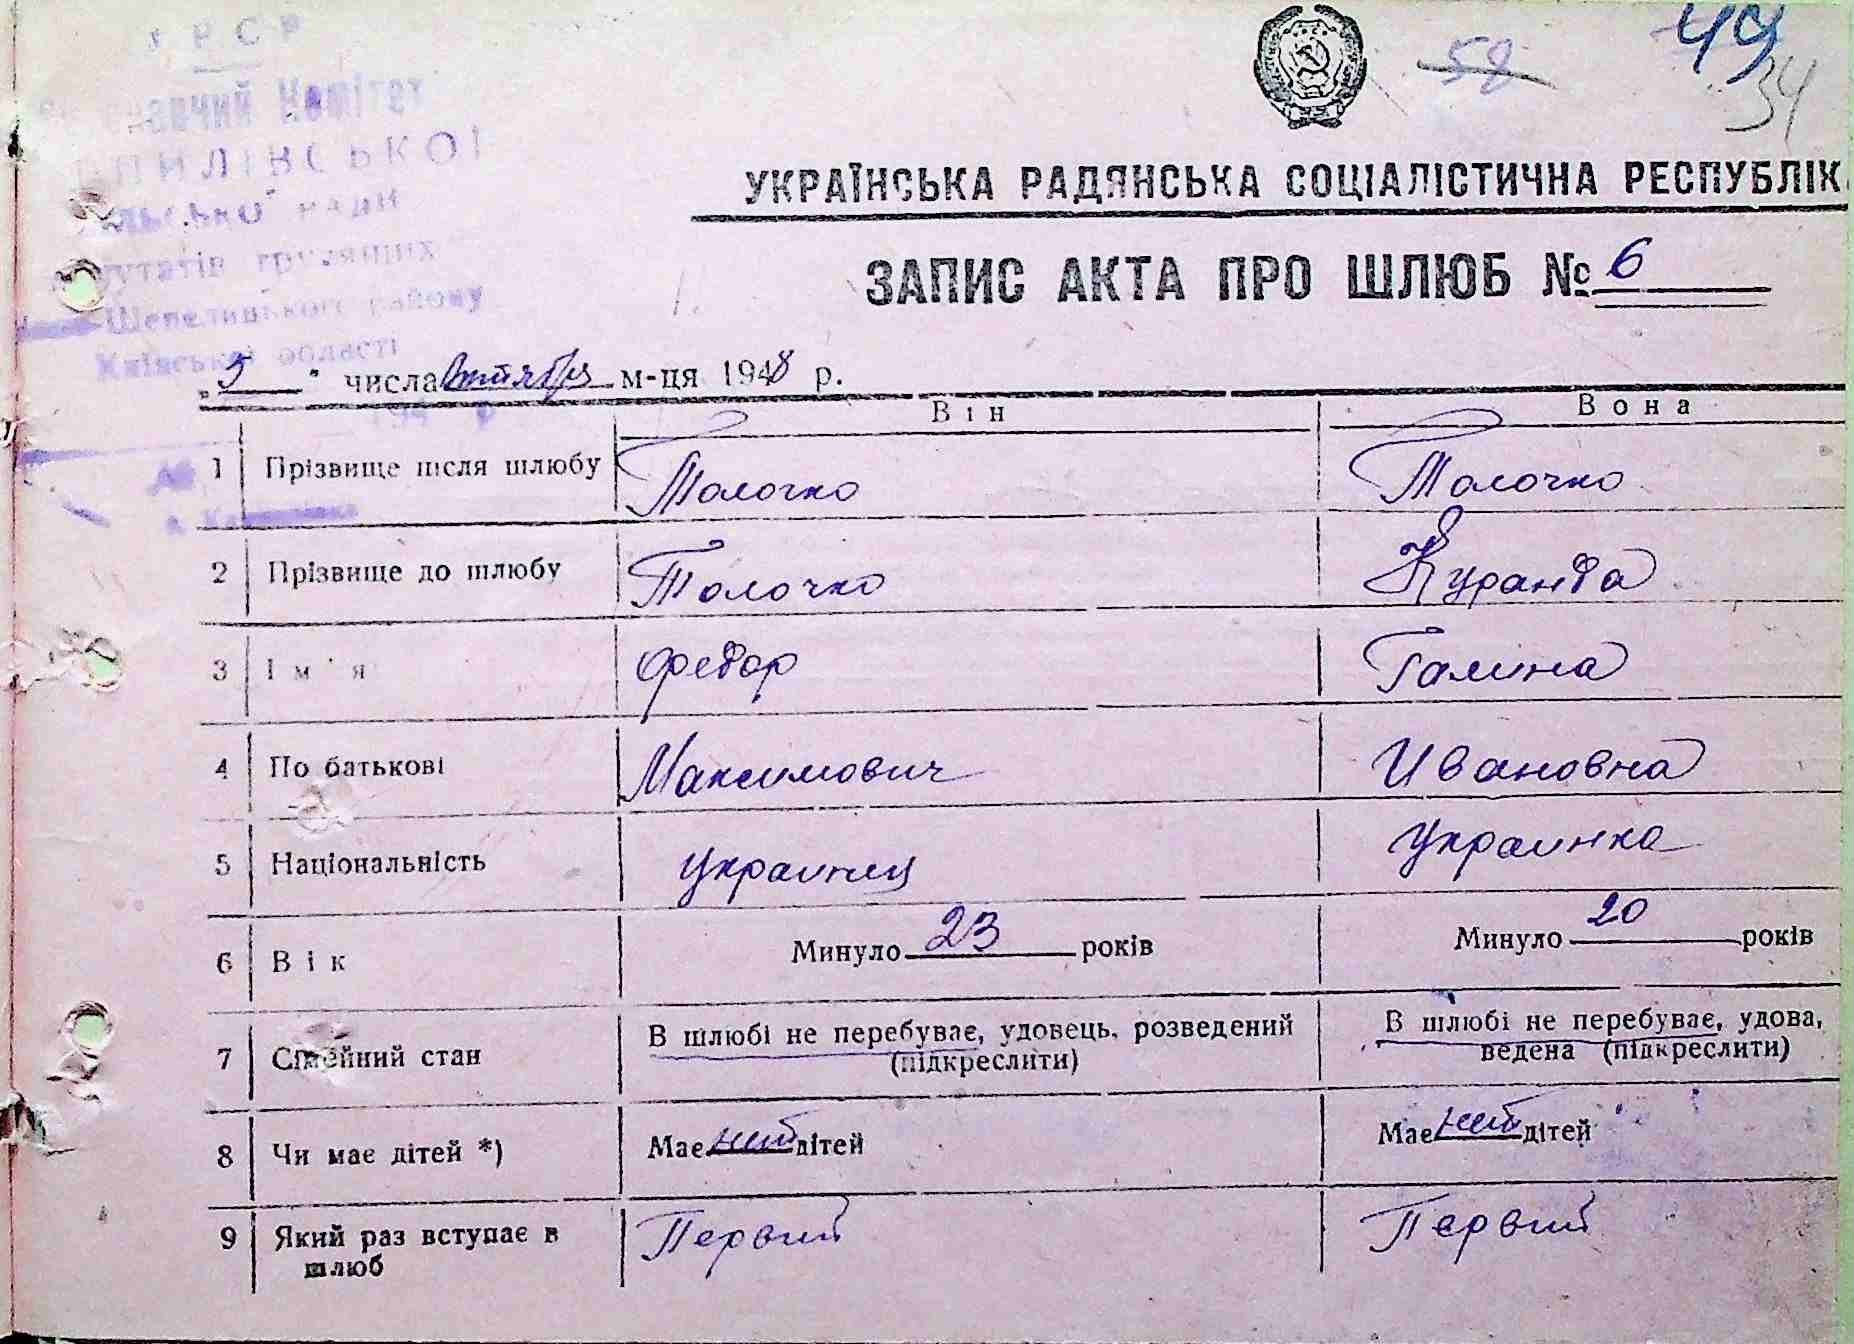 РСР
Комітет
Шепелицького району
Київської області
59
49
34
УКРАЇНСЬКА РАДЯНСЬКА СОЦІАЛІСТИЧНА РЕСПУБЛІК
ЗАПИС АКТА ПРО ШЛЮБ № 6
„5" числа октября м-ця 1948 р.
Він Вона
1 Прізвище після шлюбу Толочко Толочко
2 Прізвище до шлюбу Толочко Куранда
3 Ім'я Федор Галина
4 По батькові Максимович Ивановна
5 Національність украинец украинка
6 Вік Минуло 23 років Минуло 20 років
7 Сімейний стан В шлюбі не перебуває, удовець, розведений (підкреслити) В шлюбі не перебуває, удова, ведена (підкреслити)
8 Чи має дітей *) Має нет дітей Має нет дітей
9 Який раз вступає в шлюб Первый Первый